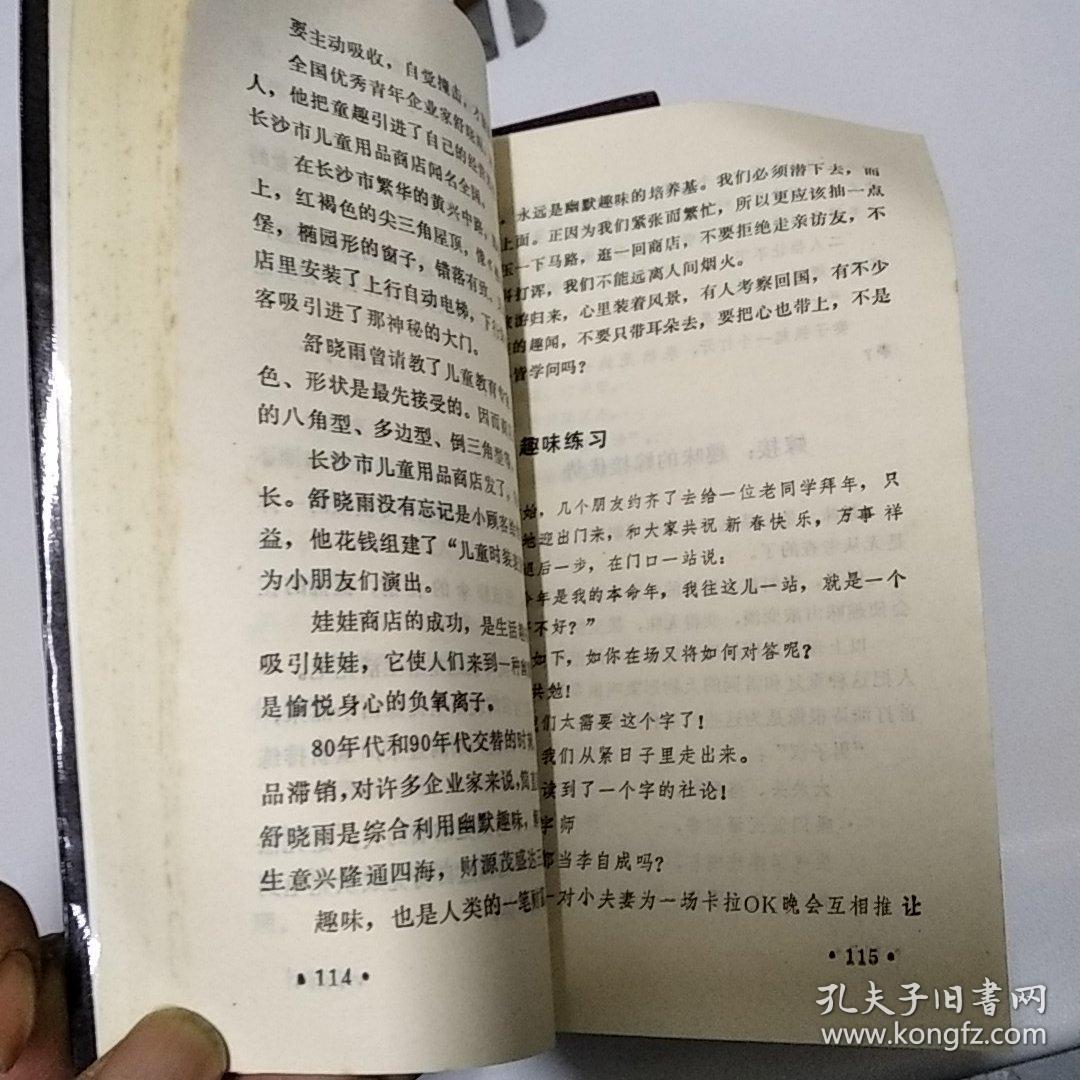 要主动吸收，自觉撞击，才
全国优秀青年企业家舒晓
人，他把童趣引进了自己的经营
长沙市儿童用品商店闻名全国，
在长沙市繁华的黄兴中路，
上，红褐色的尖三角屋顶，像
堡，椭园形的窗子，错落有致，
店里安装了上行自动电梯，下
客吸引进了那神秘的大门。
舒晓雨曾请教了儿童教育专
色、形状是最先接受的。因而
的八角型、多边型、倒三角型等，
长沙市儿童用品商店发了，
长。舒晓雨没有忘记是小顾客给
益，他花钱组建了“儿童时装
为小朋友们演出。
娃娃商店的成功，是生活
吸引娃娃，它使人们来到一种
是愉悦身心的负氧离子。
80年代和90年代交替的时
品滞销，对许多企业家来说，简直
舒晓雨是综合利用幽默趣味，
生意兴隆通四海，财源茂盛达三
趣味，也是人类的一笔财富
• 114 •
，永远是幽默趣味的培养基。我们必须潜下去，而
上面。正因为我们紧张而繁忙，所以更应该抽一点
压一下马路，逛一回商店，不要拒绝走亲访友，不
打诨，我们不能远离人间烟火。
旅游归来，心里装着风景，有人考察回国，有不少
的趣闻，不要只带耳朵去，要把心也带上，不是
皆学问吗？
趣味练习
始，几个朋友约齐了去给一位老同学拜年，只
地迎出门来，和大家共祝新春快乐，万事祥
退后一步，在门口一站说：
今年是我的本命年，我往这儿一站，就是一个
不好？”
如下，如你在场又将如何对答呢？
共勉！
我们太需要这个字了！
我们从紧日子里走出来。
读到了一个字的社论！
字师
当李自成吗？
一对小夫妻为一场卡拉OK晚会互相推让
• 115 •
孔夫子旧書网
www.kongfz.com